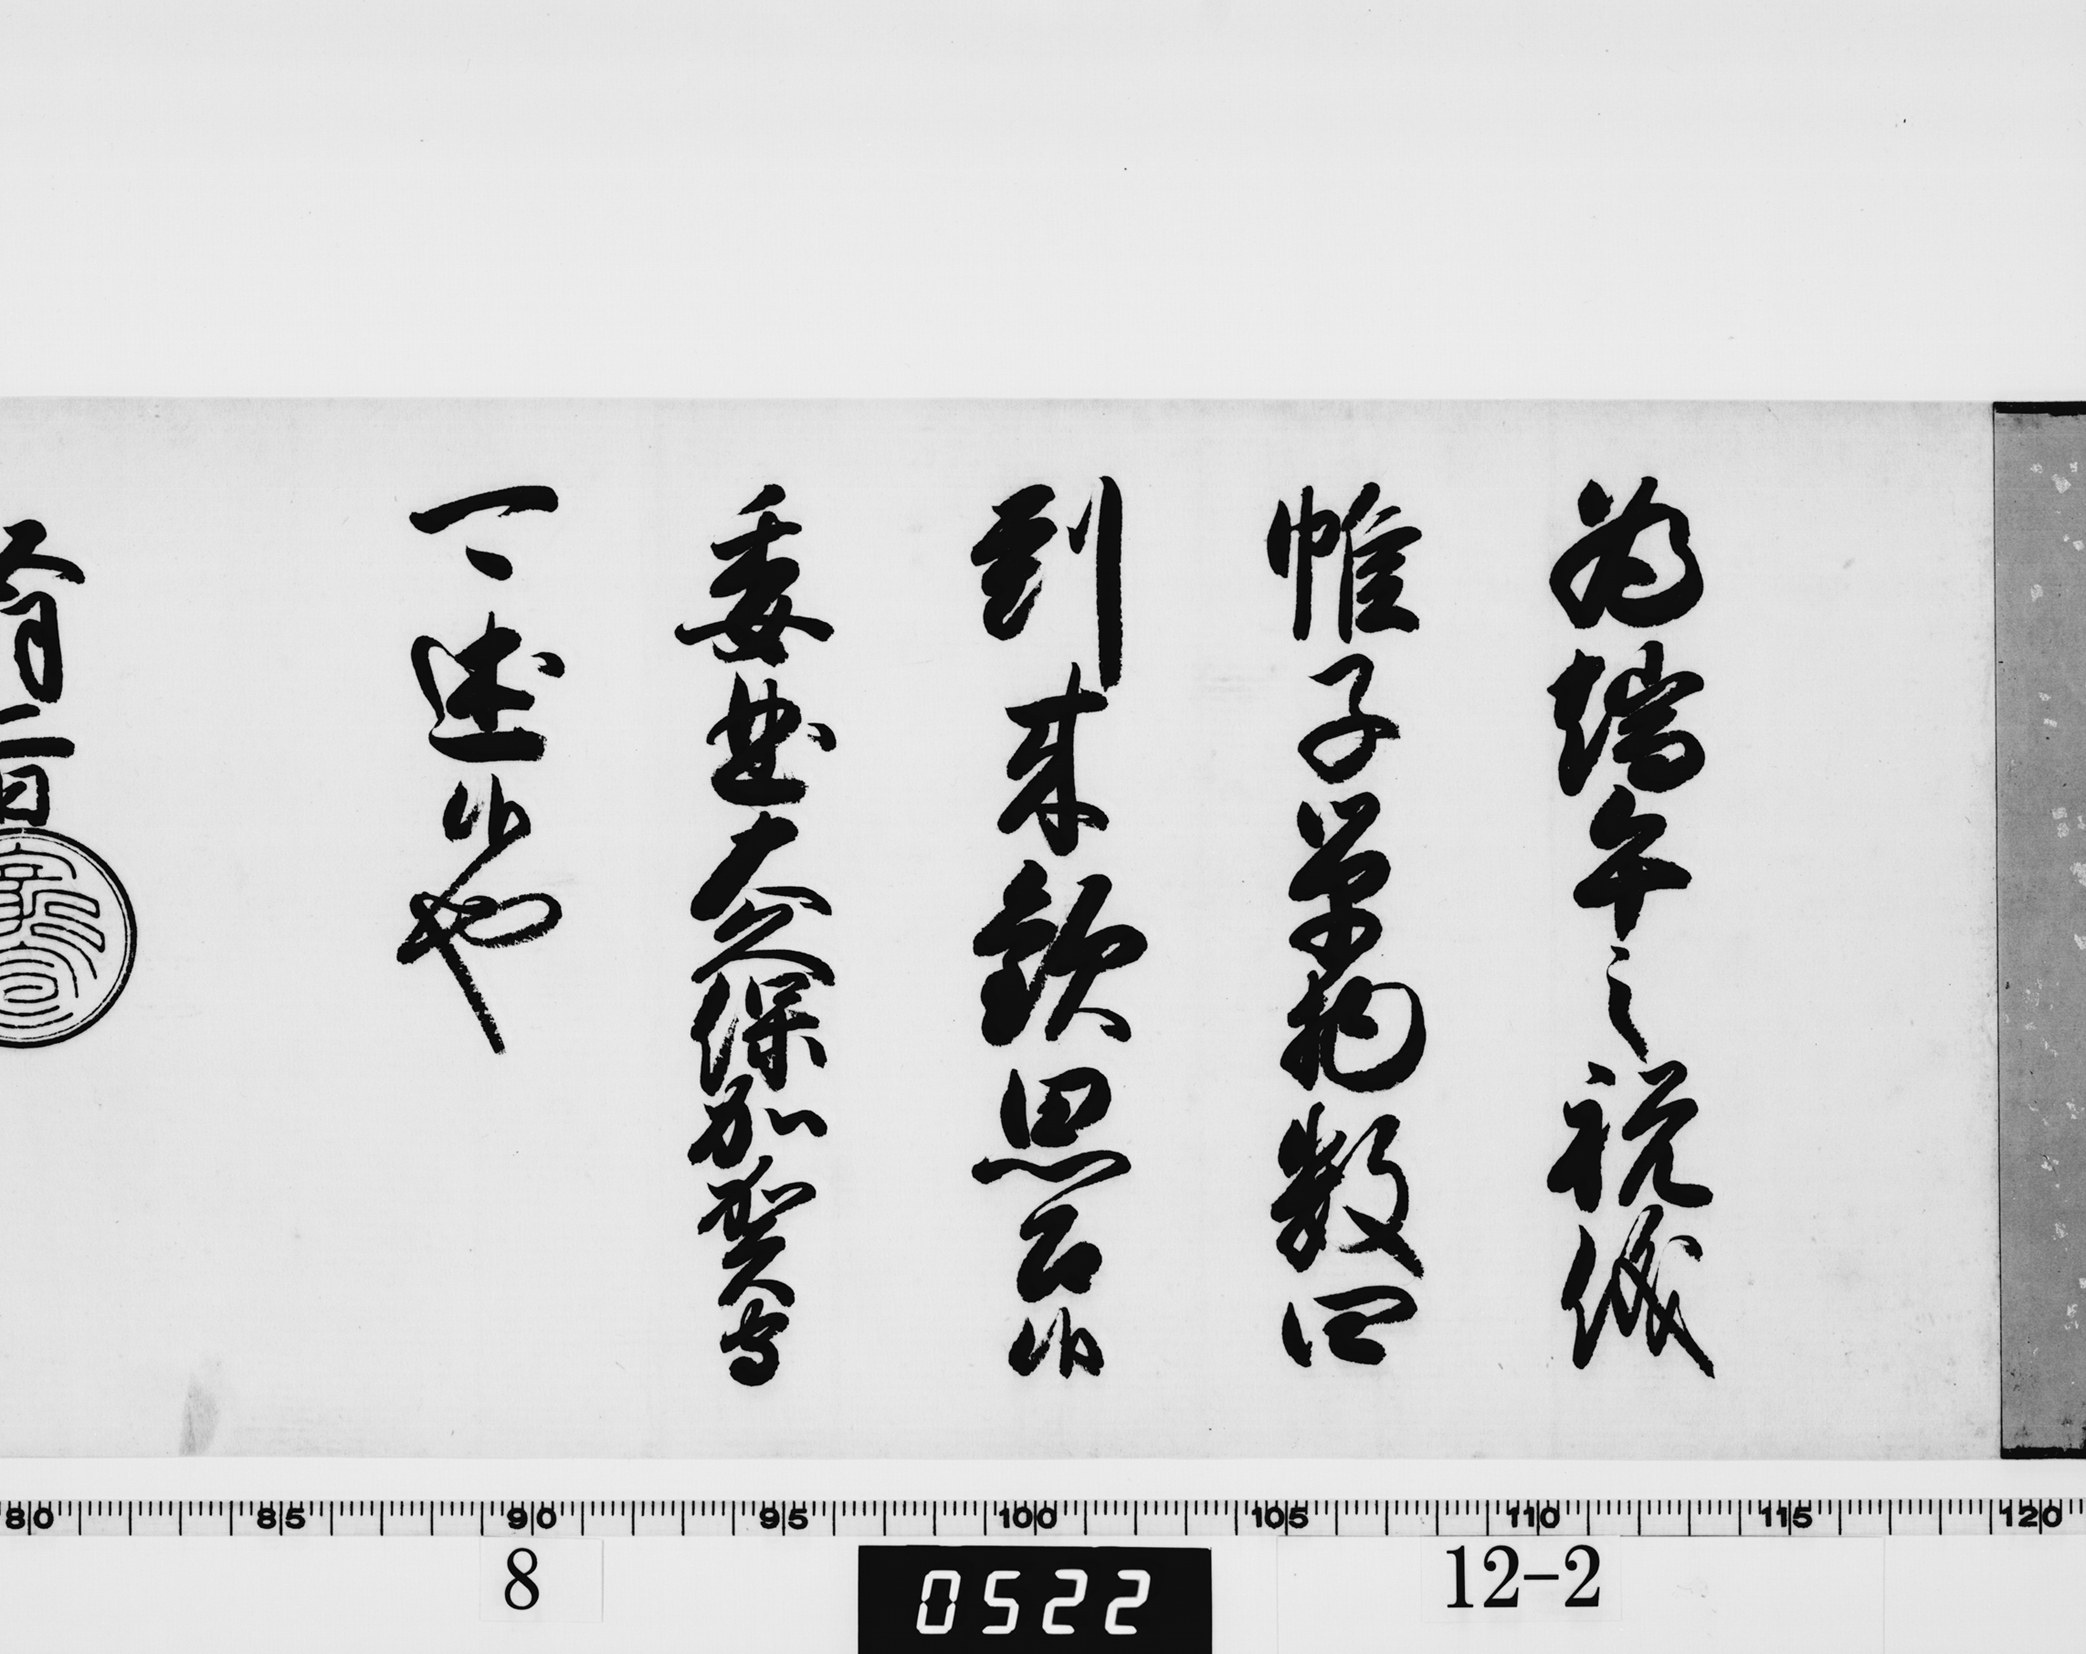 為端午之祝儀
帷子単物数四
到来歓思召候
委曲大久保加賀守
可述候也
五月二日
80 85 90 95 100 105 110 115 120
8
0522
12-2